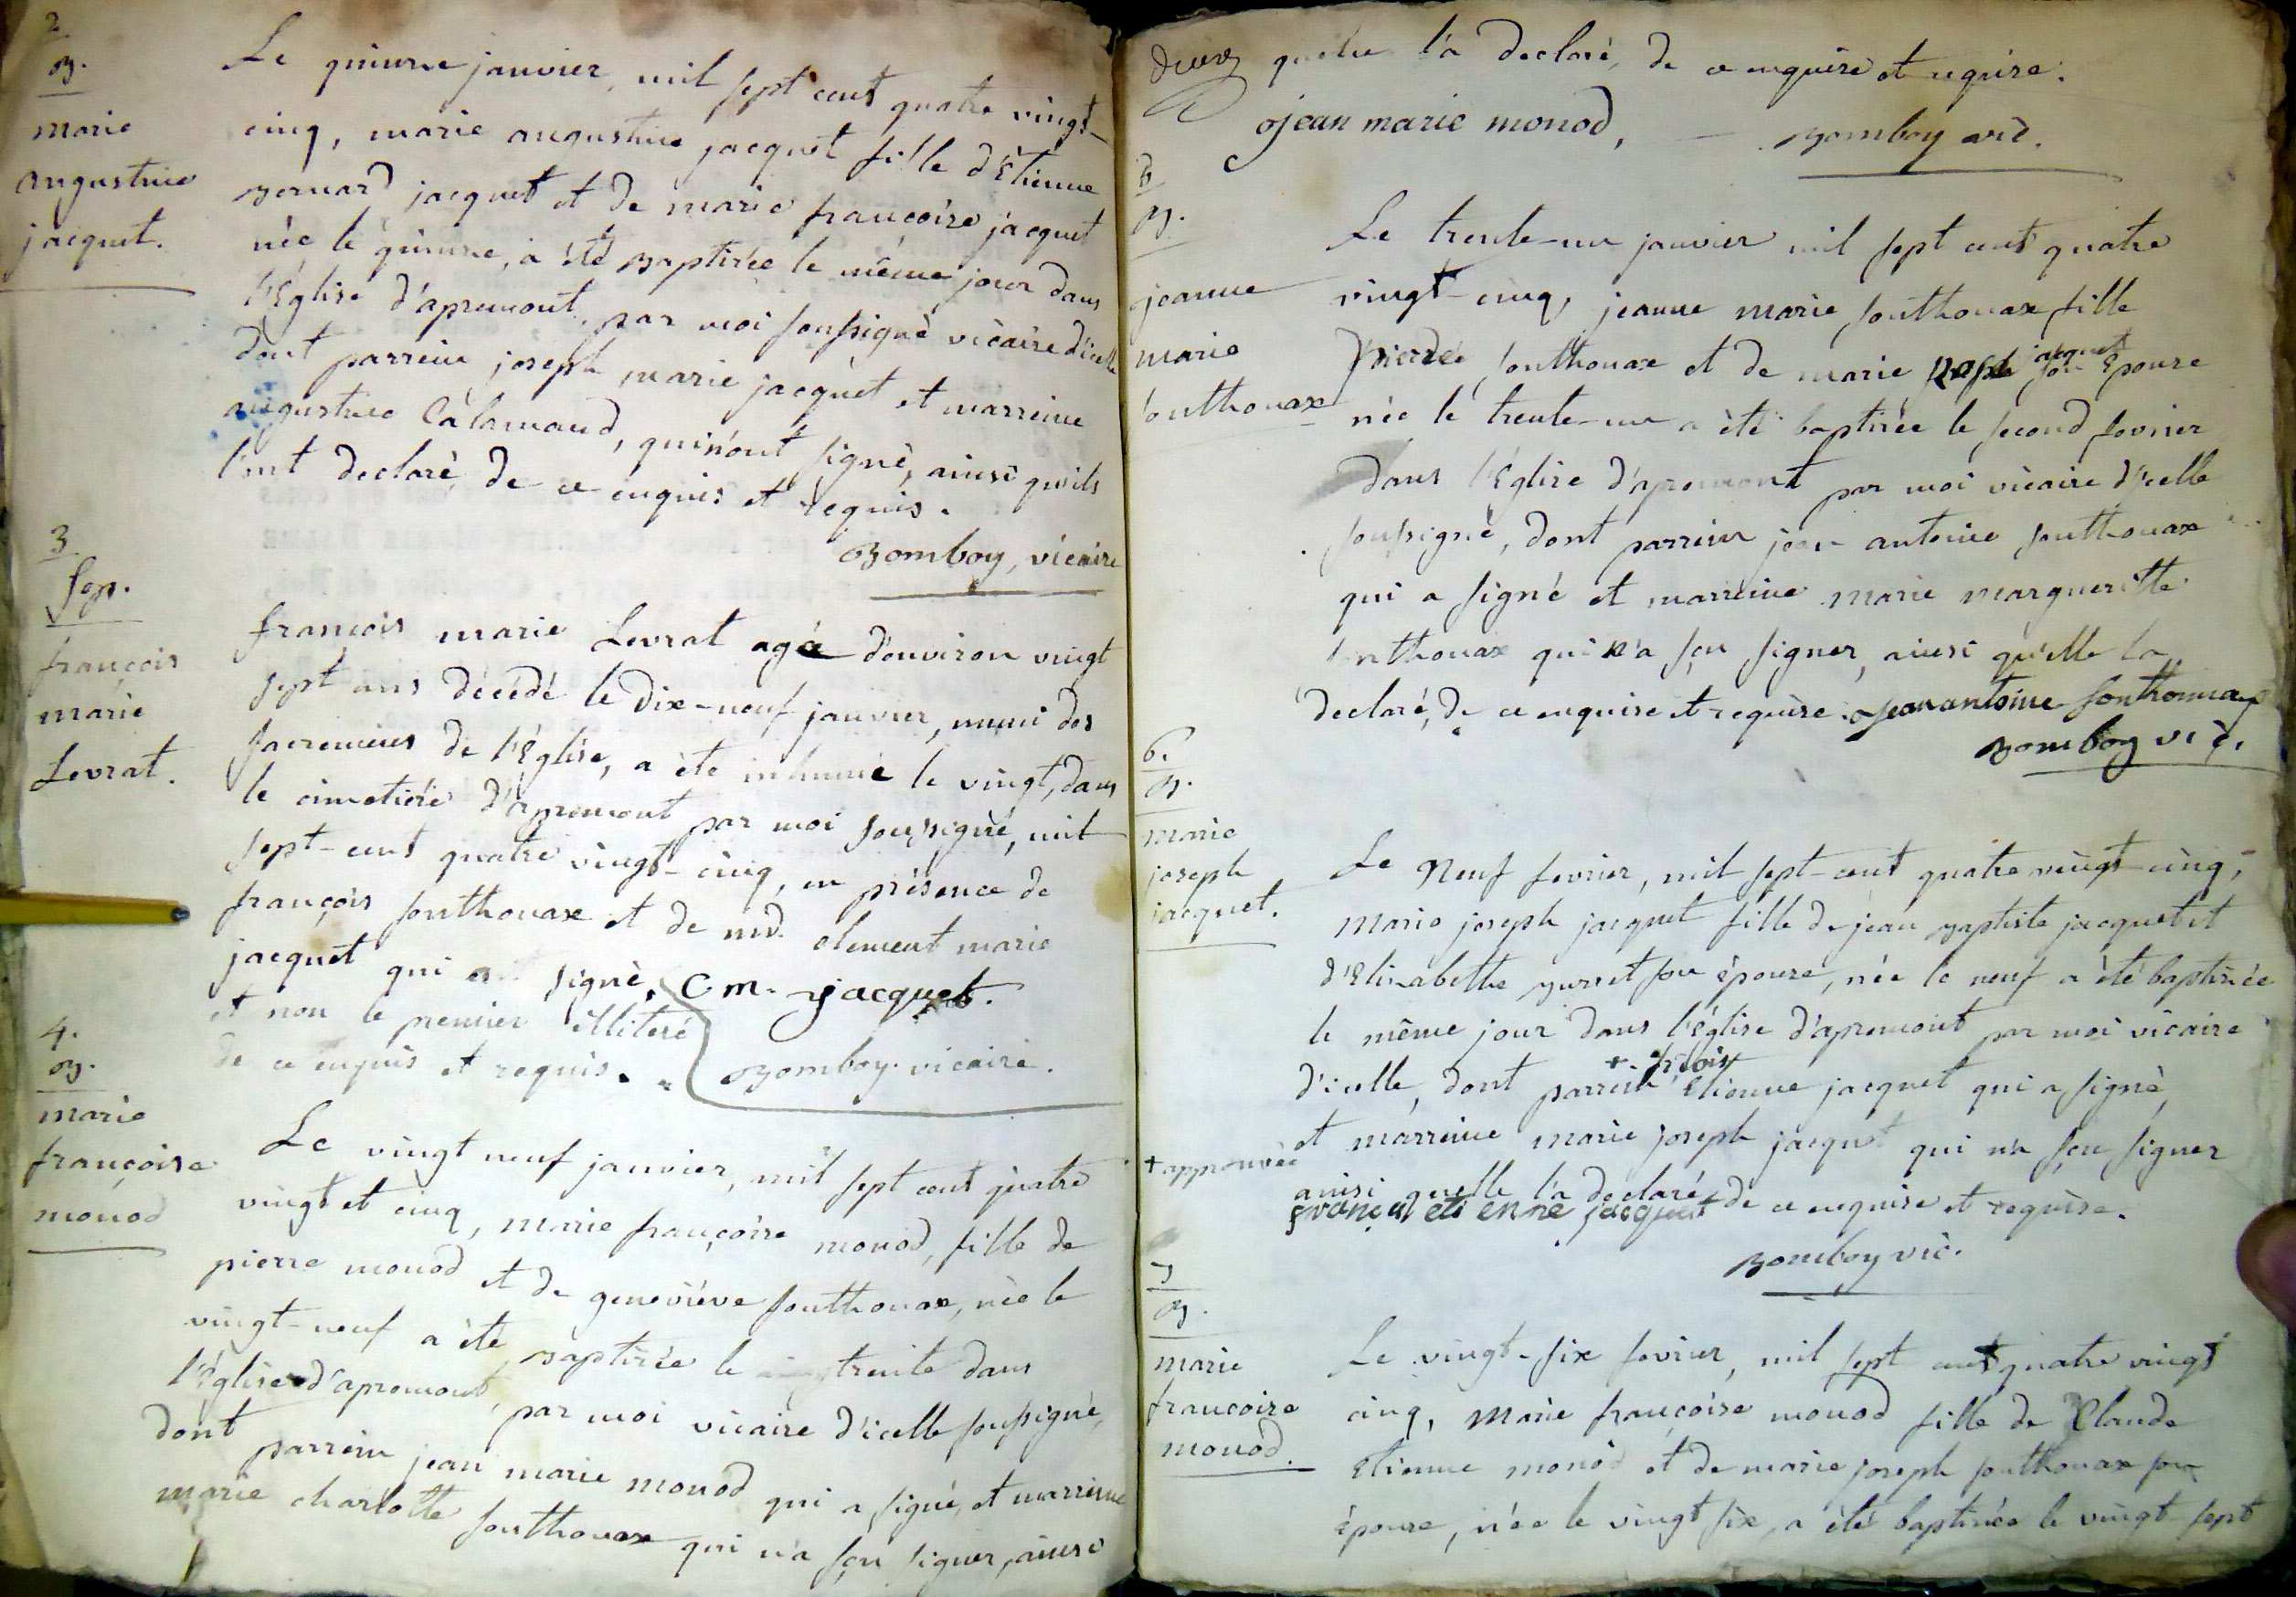 2
B.
marie
augustine
jacquet.
Le quinze janvier, mil sept cent quatre vingt-
cinq, marie augustine jacquet fille d'Etienne
Bernard jacquet et de marie françoise jacquet
née le quinze, a été Baptisée le même jour dans
l'Eglise d'apremont, par moi soussigné vicaire d'icelle
dont parrein joseph marie jacquet et marreine
augustine Calamand, qui n'ont signé, ainsi qu'ils
l'ont declaré de ce enquis et requis.
Bomboy, vicaire
3
Sep.
françois
marie
Levrat.
françois marie Levrat agé d'environ vingt
sept ans décédé le dix-neuf janvier, muni des
sacremens de l'Eglise, a été inhumé le vingt, dans
le cimetière d'apremont par moi soussigné, mil
sept-cent quatre vingt-cinq, en présence de
françois sonthonax et de md. clement marie
jacquet qui a signé, C. m. jacquet.
et non le premier illiteré
de ce enquis et requis. Bomboy. vicaire.
4.
B.
marie
françoise
monod
Le vingt neuf janvier, mil sept cent quatre
vingt et cinq, marie françoise monod, fille de
pierre monod et de geneviève sonthonax, née le
vingt-neuf a été Baptisée le trente dans
l'Eglise d'apremont, par moi vicaire d'icelle soussigné,
dont parrein jean marie monod qui a signé, et marreine
marie charlotte sonthonax qui n'a sçu signer, ainsi
qu'elle l'a declaré, de ce enquise et requise.
jean marie monod, Bomboy vic.
5
B.
jeanne
marie
sonthonax
Le trente-un janvier mil sept cent quatre
vingt-cinq, jeanne marie sonthonax fille
Pierre sonthonax et de marie jacquet son Epouse
née le trente-un a été baptisée le second fevrier
dans l'Eglise d'apremont par moi vicaire d'icelle
soussigné, dont parrein jean antoine sonthonax
qui a signé et marreine marie margueritte
sonthonax qui n'a sçu signer, ainsi qu'elle la
declaré, de ce enquise et requise. jean antoine sonthonax
Bomboy vic.
6.
B.
marie
joseph
jacquet.
Le Neuf fevrier, mil sept-cent quatre vingt-cinq,
Marie joseph jacquet fille de jean Baptiste jacquet et
d'Elisabethe son épouse, née le neuf a été baptisée
le même jour dans l'église d'apremont par moi vicaire
+ frçois
d'icelle, dont parrein Etienne jacquet qui a signé,
et marreine marie joseph jacquet qui n'a sçu signer
+ approuvée
ainsi qu'elle l'a declaré de ce enquise et requise.
françois etienne jacquet
Bomboy vic.
7
B.
marie
françoise
monod.
Le vingt-six fevrier, mil sept cent quatre vingt
cinq, Marie françoise monod fille de Claude
Etienne monod et de marie joseph sonthonax son
épouse, née le vingt six, a été baptisée le vingt-sept